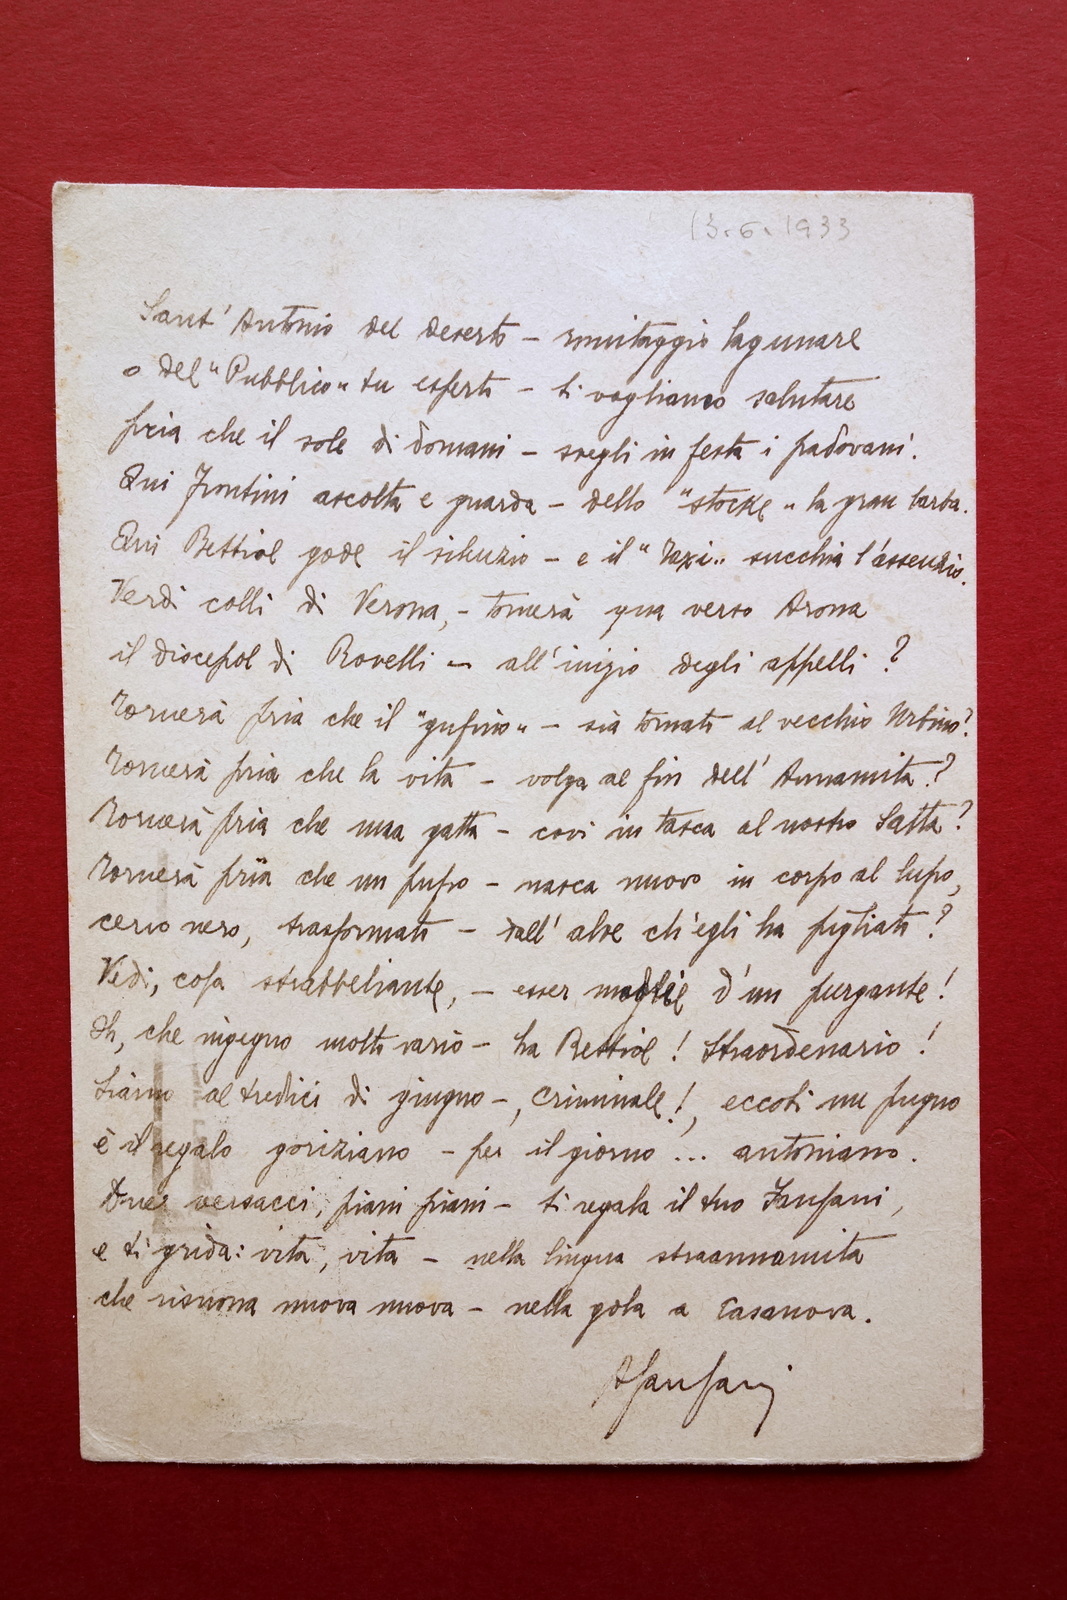 13.6.1933
Sant' Antonio del deserto – romitaggio lagunare
o del "Pubblico" tu esperto – ti vogliamo salutare
pria che il sole di domani – svegli in festa i padovani.
Qui Frontini ascolta e guarda – dello "stocke" la gran barba.
Qui Bettiol gode il silenzio – e il "Taxi" succhia l'assenzio.
Verdi colli di Verona, – tornerà qua verso Arona
il discepol di Rovelli – all'inizio degli appelli?
Tornerà pria che il "gufino" – sia tornato al vecchio Urbino?
Tornerà pria che la vita – volga al fin dell' Annamita?
Tornerà pria che una gatta – covi in tasca al nostro Satta?
Tornerà pria che un pupo – nasca nuovo in corpo al lupo,
cervo nero, trasformato – dall' alce ch'egli ha figliato?
Vedi, cosa strabbeliante, – esser moglie d'un purgante!
Oh, che ingegno molto vario – ha Bettiol! Straordenario!
Siamo al tredici di giugno –, criminale!, eccoti un pugno
è il regalo goriziano – per il giorno ... antoniano.
versacci, piani piani – ti regala il tuo Fanfani,
e ti grida: vita, vita – nella lingua straannamita
che risuona nuova nuova – nella gola a Casanova.
AFanfani